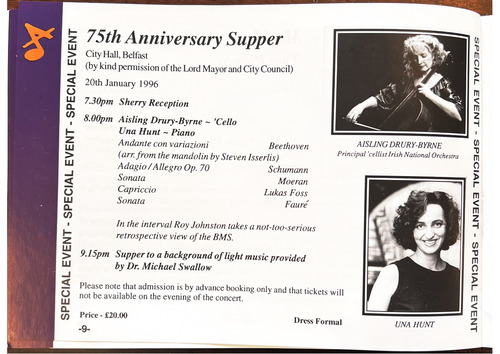 SPECIAL EVENT - SPECIAL EVENT - SPECIAL EVENT
75th Anniversary Supper
City Hall, Belfast
(by kind permission of the Lord Mayor and City Council)
20th January 1996
7.30pm Sherry Reception
8.00pm Aisling Drury-Byrne ~ 'Cello
Una Hunt ~ Piano
Andante con variazioni Beethoven
(arr. from the mandolin by Steven Isserlis)
Adagio/Allegro Op. 70 Schumann
Sonata Moeran
Capriccio Lukas Foss
Sonata Fauré
In the interval Roy Johnston takes a not-too-serious
retrospective view of the BMS.
9.15pm Supper to a background of light music provided
by Dr. Michael Swallow
Please note that admission is by advance booking only and that tickets will
not be available on the evening of the concert.
Price - £20.00
Dress Formal
-9-
AISLING DRURY-BYRNE
Principal 'cellist Irish National Orchestra
UNA HUNT
SPECIAL EVENT - SPECIAL EVENT - SPECIAL EVENT